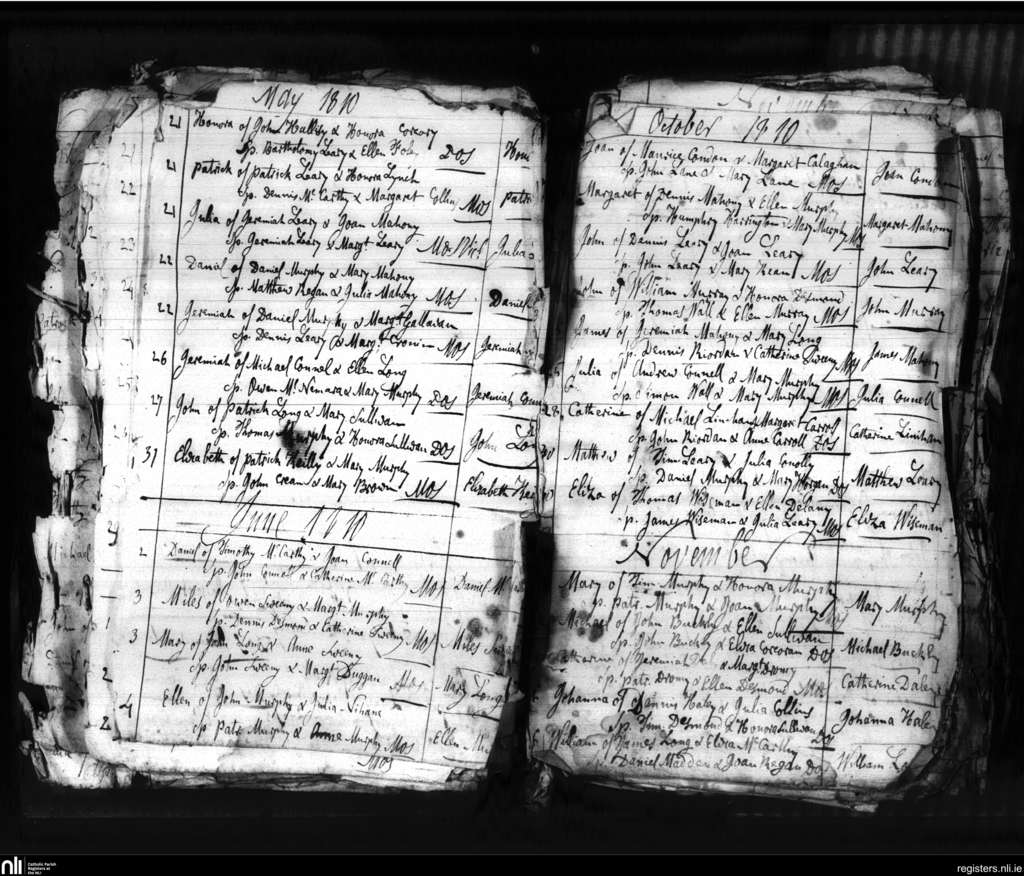 May 1810
21 Honora of John Hallisy & Honora Corcory
Sp. Bartholomy Leary & Ellen Foley DOS Hon
21 Patrick of Patrick Leary & Honora Lynch
Sp. Dennis McCarthy & Margaret Collins MOS Patri
21 Julia of Jeremiah Leary & Joan Mahony
Sp. Jeremiah Leary & Margt Leary Julia
22 Daniel of Daniel Murphy & Mary Mahony
Sp. Matthew Regan & Julia Mahony MOS Daniel
22 Jeremiah of Daniel Murphy & Margt Callaghan
Sp. Dennis Leary & Margt Cronin MOS Jeremiah
26 Jeremiah of Michael Connel & Ellen Long
Sp. Owen McNemara & Mary Murphy DOS Jeremiah Conn
27 John of Patrick Long & Mary Sullivan
Sp. Thomas Murphy & Honora Sullivan DOS John Lon
31 Elizabeth of Patrick Reilly & Mary Murphy
Sp. John Crean & Mary Brown MOS Elizabeth
June 1810
2 Daniel of Timothy McCarthy & Joan Connell
Sp. John Connell & Catherine McCarthy MOS Daniel M
3 Miles of Owen Sweeny & Margt Murphy
Sp. Dennis Desmond & Catherine Sweeny MOS Miles Sw
3 Mary of John Long & Anne Sweeny
Sp. John Sweeny & Margt Duggan Mary Long
4 Ellen of John Murphy & Julia
Sp Patk Murphy & Anne Murphy MOS Ellen Mu
MOS
October 1810
Joan of Maurice Condon & Margaret Calaghan
Sp. John Lane & Mary Lane MOS Joan Cond
Margaret of Dennis Mahony & Ellen Murphy
Sp. Humphry Harrington & Mary Murphy MOS Margaret Mahony
John of Dennis Leary & Joan Leary
Sp. John Leary & Mary Keane MOS John Leary
John of William Murray & Honora Desmond
Sp. Thomas Wall & Ellen Murray MOS John Murray
James of Jeremiah Mahony & Mary Long
Sp. Dennis Riordan & Catherine Sweeny MOS James Mahony
Julia of Andrew Connell & Mary Murphy
Sp. Simon Wall & Mary Murphy MOS Julia Connell
28 Catherine of Michael Linihan & Margaret Carroll
Sp. John Riordan & Anne Carroll DOS Catherine Linihan
30 Mathew of Timy Leary & Julia Conolly
Sp. Daniel Murphy & Mary DOS Matthew Leary
Eliza of Thomas Wiseman & Ellen Delany
Sp. James Wiseman & Julia Leary MOS Eliza Wiseman
November
Mary of Timy Murphy & Honora Murphy
Sp. Patk. Murphy & Joan Murphy Mary Murphy
Michael of John Buckly & Ellen Sullivan
Sp. John Buckly & Eliza Corcoran DOS Michael Buckley
Catharine of Jeremiah & Margt Dromy
Sp. Patk Dromy & Ellen Desmond MOS Catherine Daley
Johanna of Dennis Haley & Julia Collins
Sp. Tim Desmond & Honora Sullivan Johanna Hale
William of James Long & Eliza McCarthy
Sp. Daniel Madden & Joan Regan DOS William Lo
nli Catholic Parish
Registers at
the NLI
registers.nli.ie